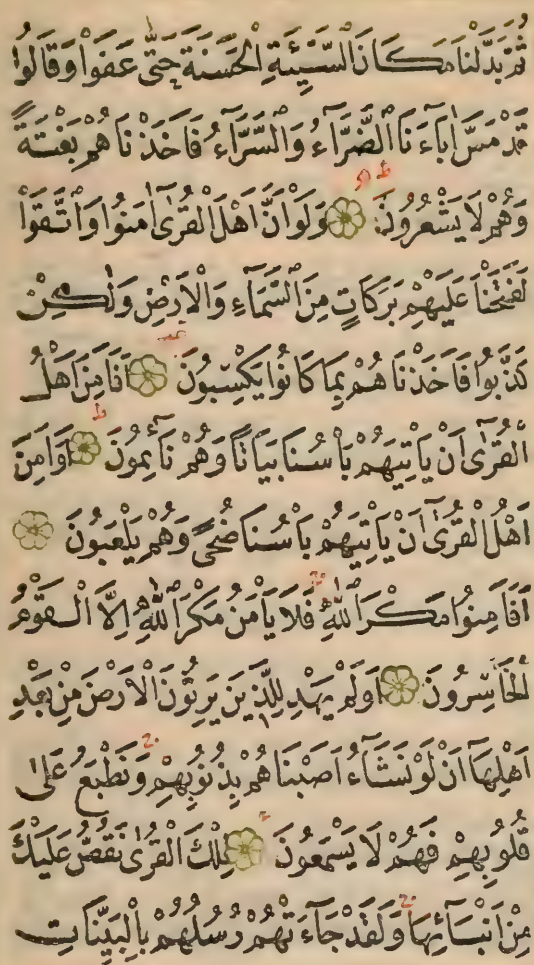 ثُمَّ بَدَّلْنَا مَكَانَ السَّيِّئَةِ الْحَسَنَةَ حَتّٰى عَفَوْا وَقَالُوا
قَدْ مَسَّ اٰبَآءَنَا الضَّرَّآءُ وَالسَّرَّآءُ فَاَخَذْنَاهُمْ بَغْتَةً
وَهُمْ لَا يَشْعُرُونَ وَلَوْ اَنَّ اَهْلَ الْقُرٰٓى اٰمَنُوا وَاتَّقَوْا
لَفَتَحْنَا عَلَيْهِمْ بَرَكَاتٍ مِنَ السَّمَآءِ وَالْاَرْضِ وَلٰكِنْ
كَذَّبُوا فَاَخَذْنَاهُمْ بِمَا كَانُوا يَكْسِبُونَ اَفَاَمِنَ اَهْلُ
الْقُرٰٓى اَنْ يَاْتِيَهُمْ بَاْسُنَا بَيَاتًا وَهُمْ نَآئِمُونَ اَوَاَمِنَ
اَهْلُ الْقُرٰٓى اَنْ يَاْتِيَهُمْ بَاْسُنَا ضُحًى وَهُمْ يَلْعَبُونَ
اَفَاَمِنُوا مَكْرَ اللّٰهِ فَلَا يَاْمَنُ مَكْرَ اللّٰهِ اِلَّا الْقَوْمُ
الْخَاسِرُونَ اَوَلَمْ يَهْدِ لِلَّذِينَ يَرِثُونَ الْاَرْضَ مِنْ بَعْدِ
اَهْلِهَآ اَنْ لَوْ نَشَآءُ اَصَبْنَاهُمْ بِذُنُوبِهِمْ وَنَطْبَعُ عَلٰى
قُلُوبِهِمْ فَهُمْ لَا يَسْمَعُونَ تِلْكَ الْقُرٰى نَقُصُّ عَلَيْكَ
مِنْ اَنْبَآئِهَا وَلَقَدْ جَآءَتْهُمْ رُسُلُهُمْ بِالْبَيِّنَاتِ